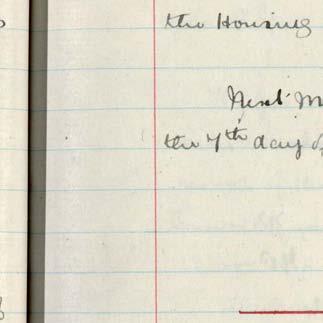 the Housing
Next M
the 7th day